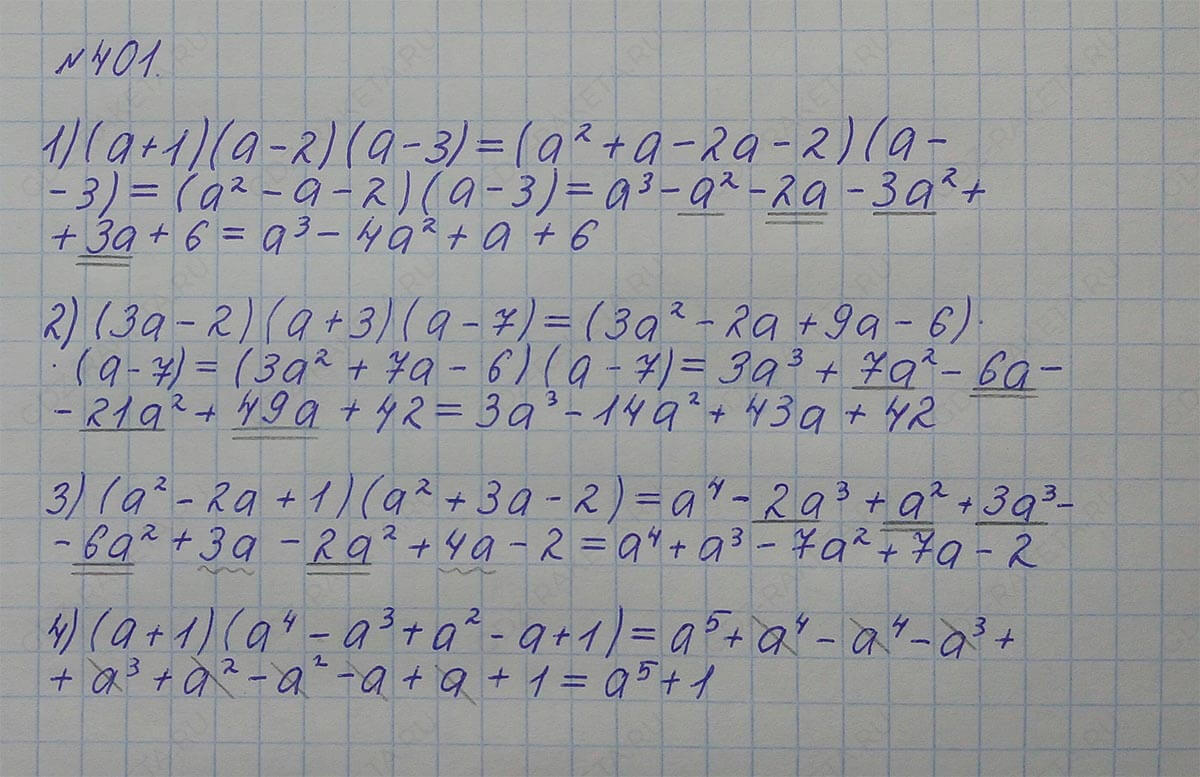 №401.
1) (a+1)(a-2)(a-3)=(a²+a-2a-2)(a-
-3)=(a²-a-2)(a-3)=a³-a²-2a-3a²+
+3a+6=a³-4a²+a+6
2) (3a-2)(a+3)(a-7)=(3a²-2a+9a-6)·
·(a-7)=(3a²+7a-6)(a-7)=3a³+7a²-6a-
-21a²+49a+42=3a³-14a²+43a+42
3) (a²-2a+1)(a²+3a-2)=a⁴-2a³+a²+3a³-
-6a²+3a-2a²+4a-2=a⁴+a³-7a²+7a-2
4) (a+1)(a⁴-a³+a²-a+1)=a⁵+a⁴-a⁴-a³+
+a³+a²-a²-a+a+1=a⁵+1